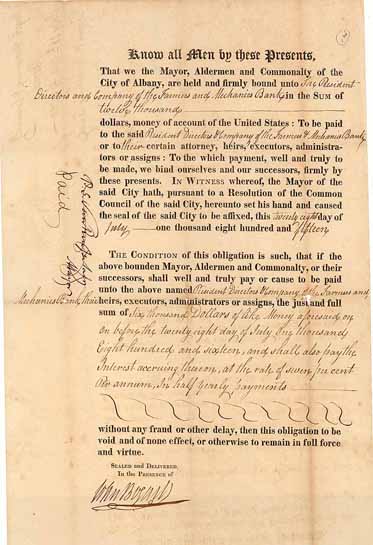 Know all Men by these Presents,
That we the Mayor, Aldermen and Commonalty of the
City of Albany, are held and firmly bound unto The President
Directors and Company of the Farmers and Mechanics Bank in the Sum of
twelve thousand
dollars, money of account of the United States: To be paid
to the said President Directors & Company of the Farmers & Mechanics Bank
or to their certain attorney, heirs, executors, administra-
tors or assigns: To the which payment, well and truly to
be made, we bind ourselves and our successors, firmly by
these presents. In Witness whereof, the Mayor of the
said City hath, pursuant to a Resolution of the Common
Council of the said City, hereunto set his hand and caused
the seal of the said City to be affixed, this twenty eight day of
July one thousand eight hundred and fifteen
The Condition of this obligation is such, that if the
above bounden Mayor, Aldermen and Commonalty, or their
successors, shall well and truly pay or cause to be paid
unto the above named President Directors & Company of the Farmers and
Mechanics Bank their heirs, executors, administrators or assigns, the just and full
sum of Six thousand Dollars of like Money aforesaid on
or before the twenty eight day of July One thousand
Eight hundred and sixteen, and shall also pay the
Interest accruing thereon, at the rate of seven per cent
per annum, in half yearly payments
without any fraud or other delay, then this obligation to be
void and of none effect, or otherwise to remain in full force
and virtue.
Sealed and Delivered,
In the Presence of
John Bogart
Paid